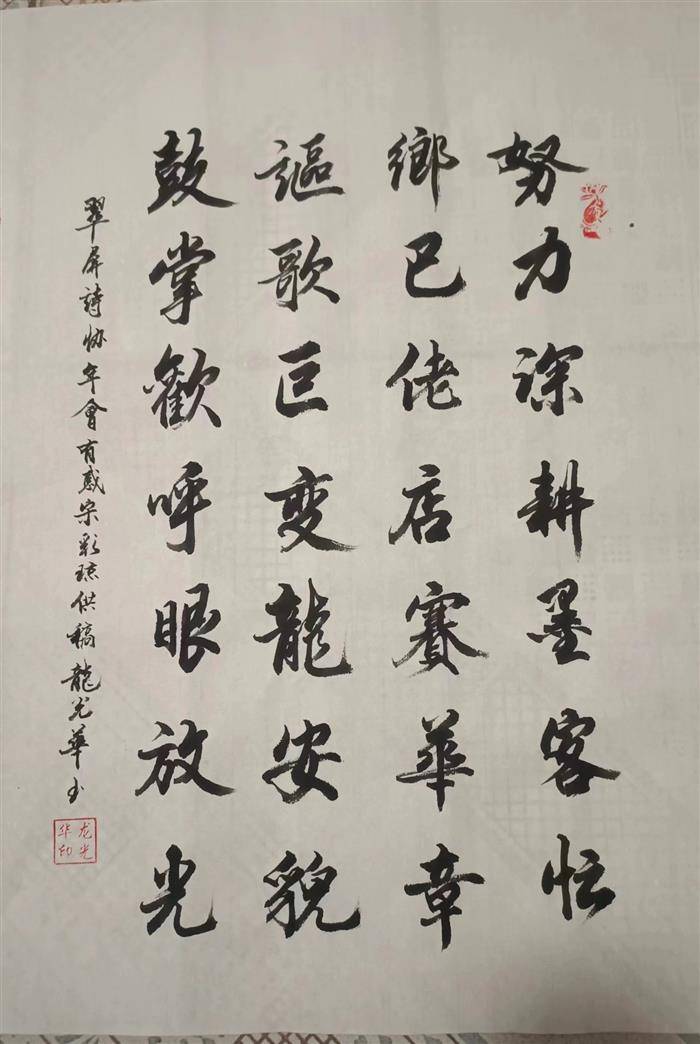 努力深耕墨客忙
鄉巴佬店賽華章
謳歌巨变龍安貌
鼓掌歡呼眼放光
翠屏詩协年會有感宋彩琼供稿龍光華书
龙光华印